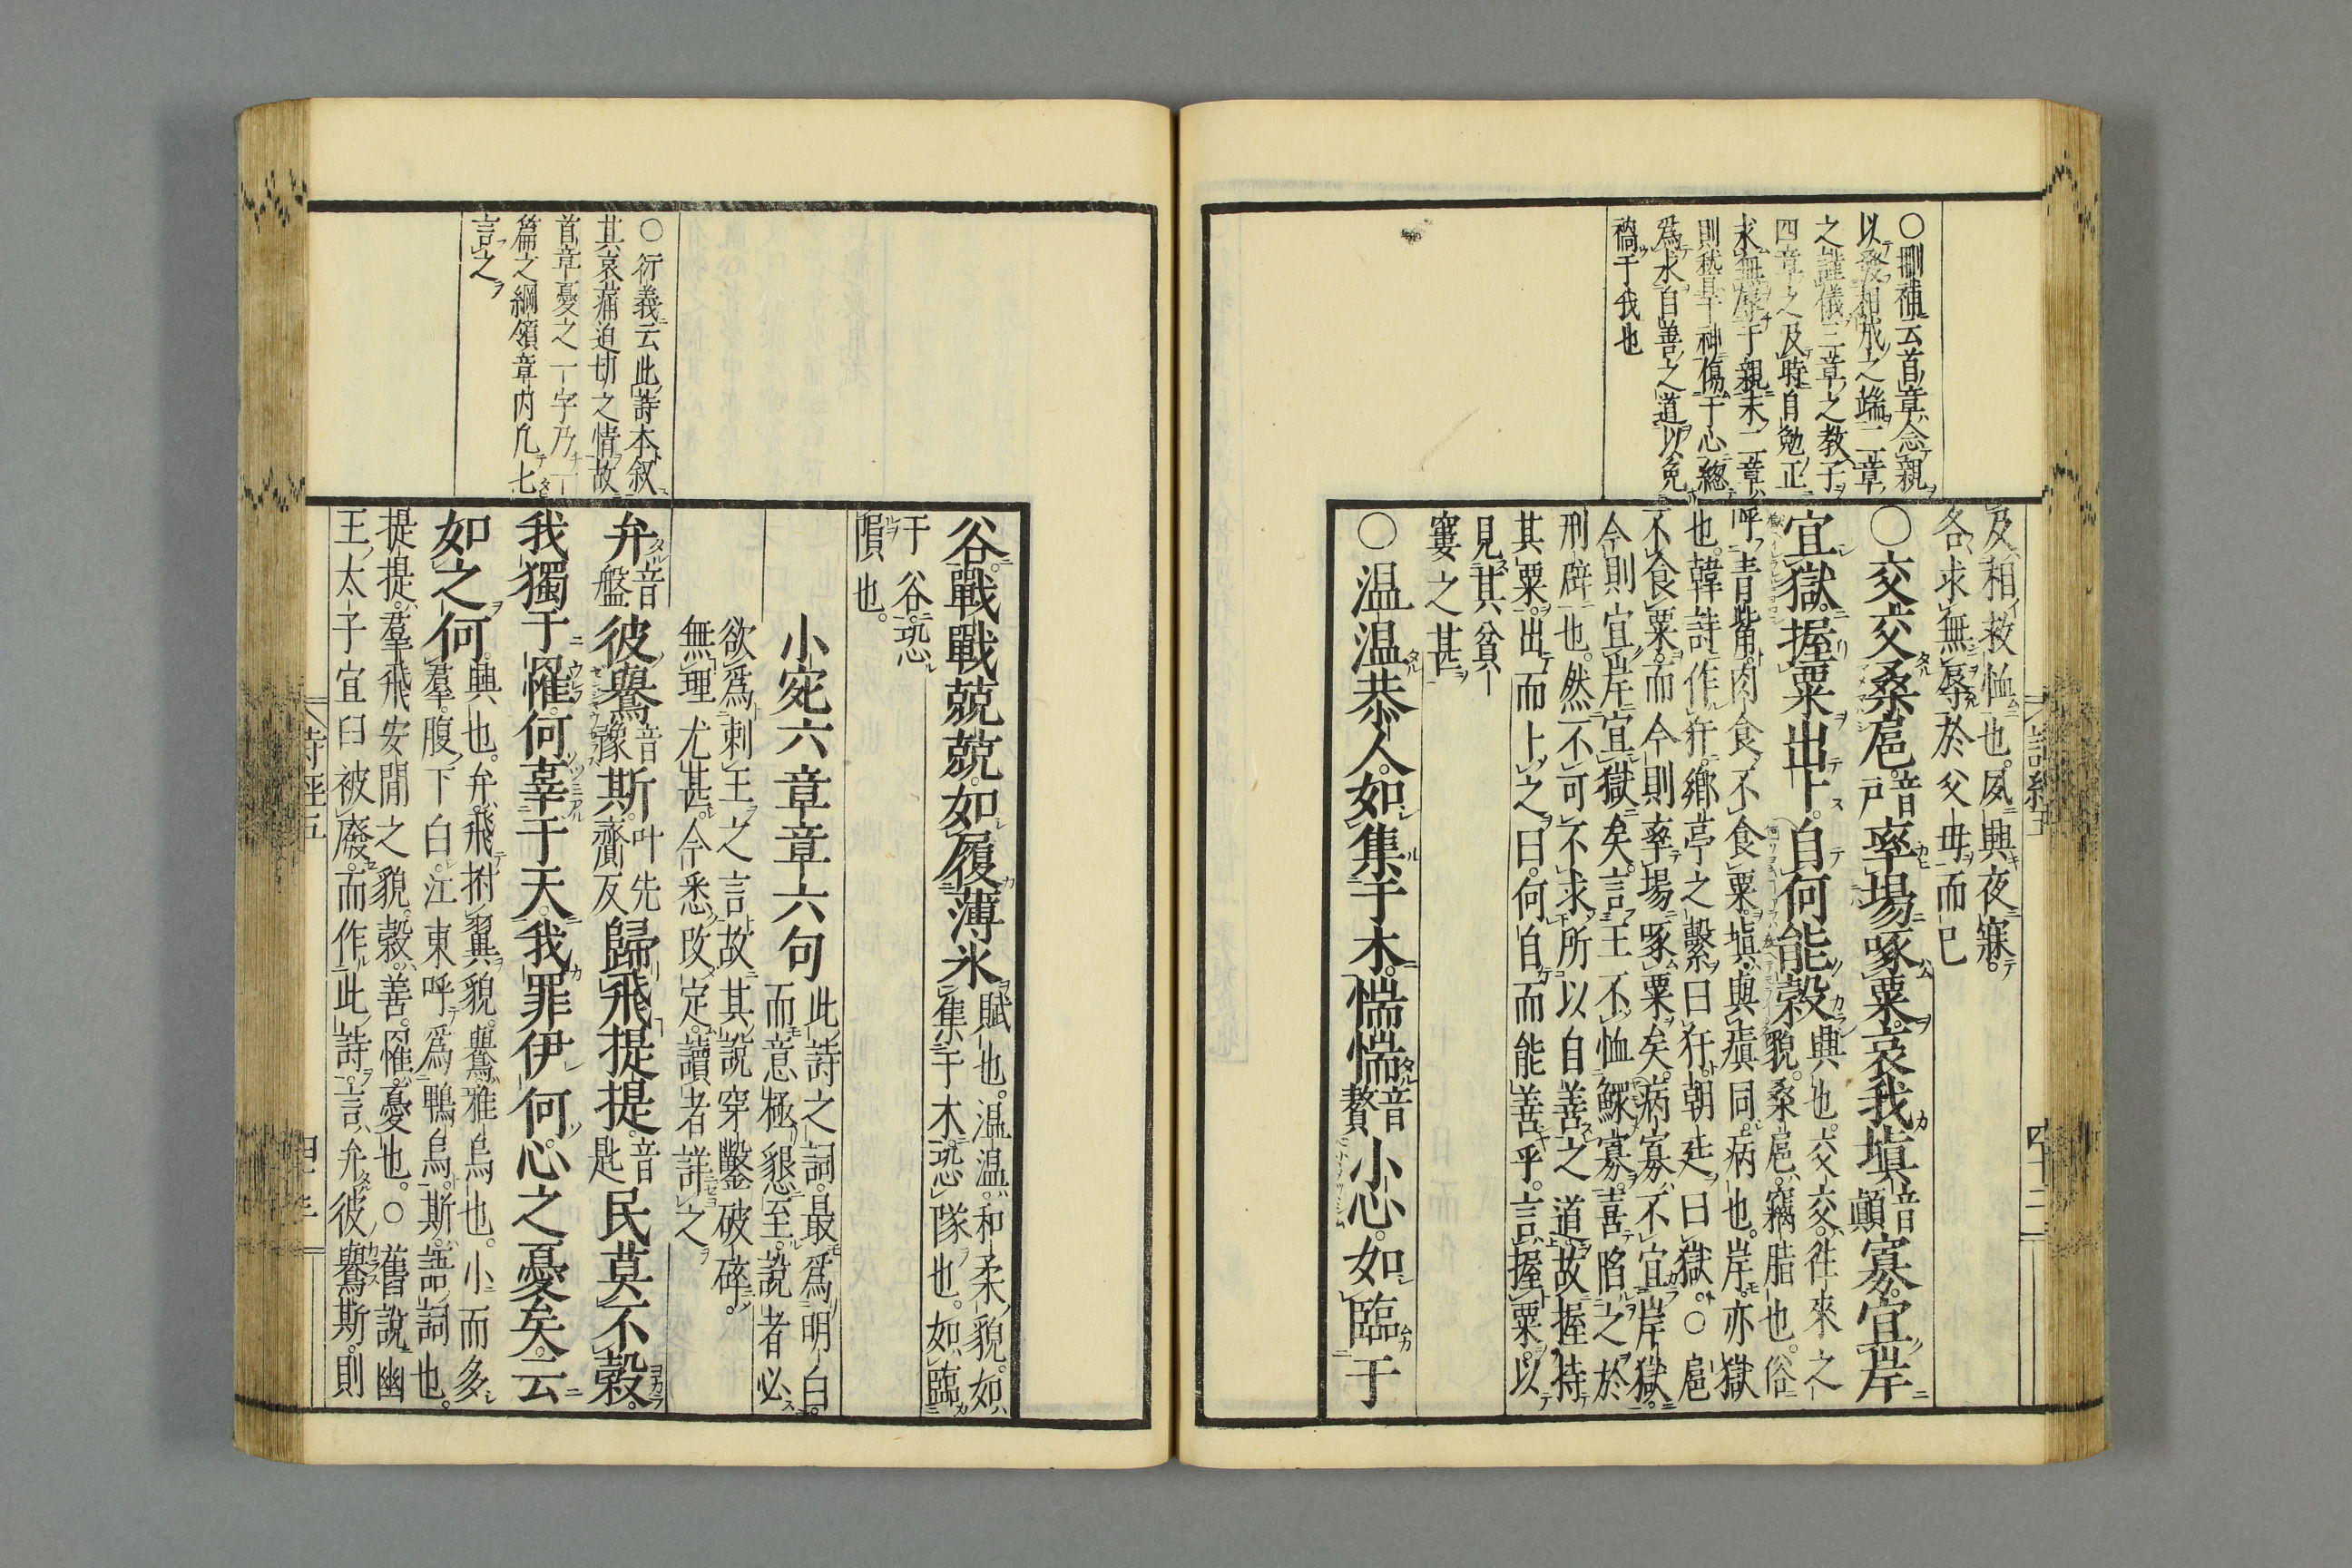 〇刪補云首章念親
以發相戒之端二章
之謹儀三章之教子
四章之及時自勉正
求無辱于親末二章
則就旱神傷于心總
為求自善之道以免
禍于我也
及相救恤也。夙興夜寐。
各求無辱於父母而已
〇交交桑扈。音戶率場啄粟。哀我塡音顚寡。宜岸
宜獄。握粟出卜。自何能穀興也。交交。徃來之
貌。桑扈。竊脂也。俗
呼青觜。肉食。不食粟。塡。與瘨同。病也。岸。亦獄
也。韓詩作犴。鄉亭之繫曰犴。朝廷曰獄。〇扈
不食粟。而今則率場啄粟矣。病寡。不宜岸獄。
今則宜岸宜獄矣。言王不恤鰥寡。喜陷之於
刑辟也。然不可不求所以自善之道。故握持
其粟。出而卜之曰。何自而能善乎。言握粟。以
見其貧
窶之甚
〇温温恭人。如集于木。惴惴音贅小心。如臨于
詩經五
谷。戰戰兢兢。如履薄氷。賦也。温温。和柔貌。如
集于木。恐隊也。如臨
于谷。恐
隕也。
小宛六章章六句此詩之詞。最爲明白。
而意極懇至。說者必
欲爲刺王之言。故其說穿鑿破碎。
無理尤甚。今悉改定。讀者詳之
弁音盤彼鸒音豫斯。叶先齎反歸飛提提。音匙民莫不穀。
我獨于罹。何辜于天。我罪伊何。心之憂矣。云
如之何。興也。弁。飛拊翼貌。鸒。雅烏也。小而多
羣。腹下白。江東呼爲鵯烏。斯。語詞也。
提提。羣飛安閒之貌。穀。善。罹。憂也。〇舊說幽
王太子宜臼被廢。而作此詩。言弁彼鸒斯。則
〇衍義云此詩本叙
其哀痛迫切之情故
首章憂之一字乃一
篇之綱領章内凡七
言之